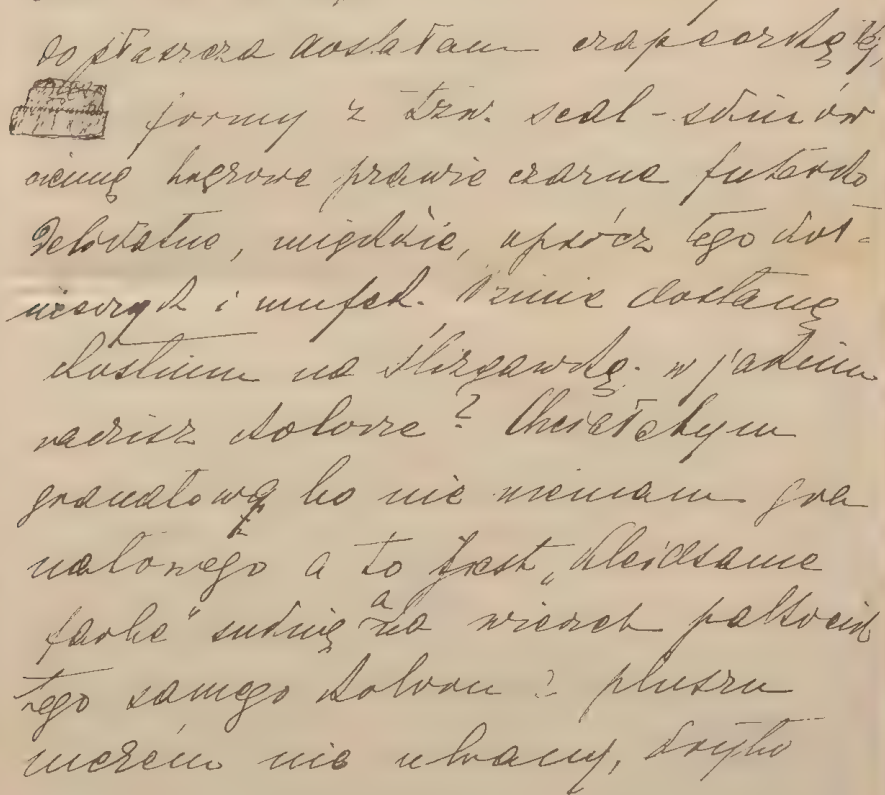 do płaszcza dostałam czapeczkę tej
formy z tzw. seal-skinów
ciemne brązowe prawie czarne futerko
delikatne, miękkie, oprócz tego koł-
nierzyk i mufek. W zimie dostanę
kostium na ślizgawkę. w jakim
radzisz kolorze? Chciałabym
granatową bo nic niemam gra
natowego a to jest „kleidsame
farbe" suknię a na wierzch paltocik
tego samego koloru z pluszu
niczem nie ubrany, tylko